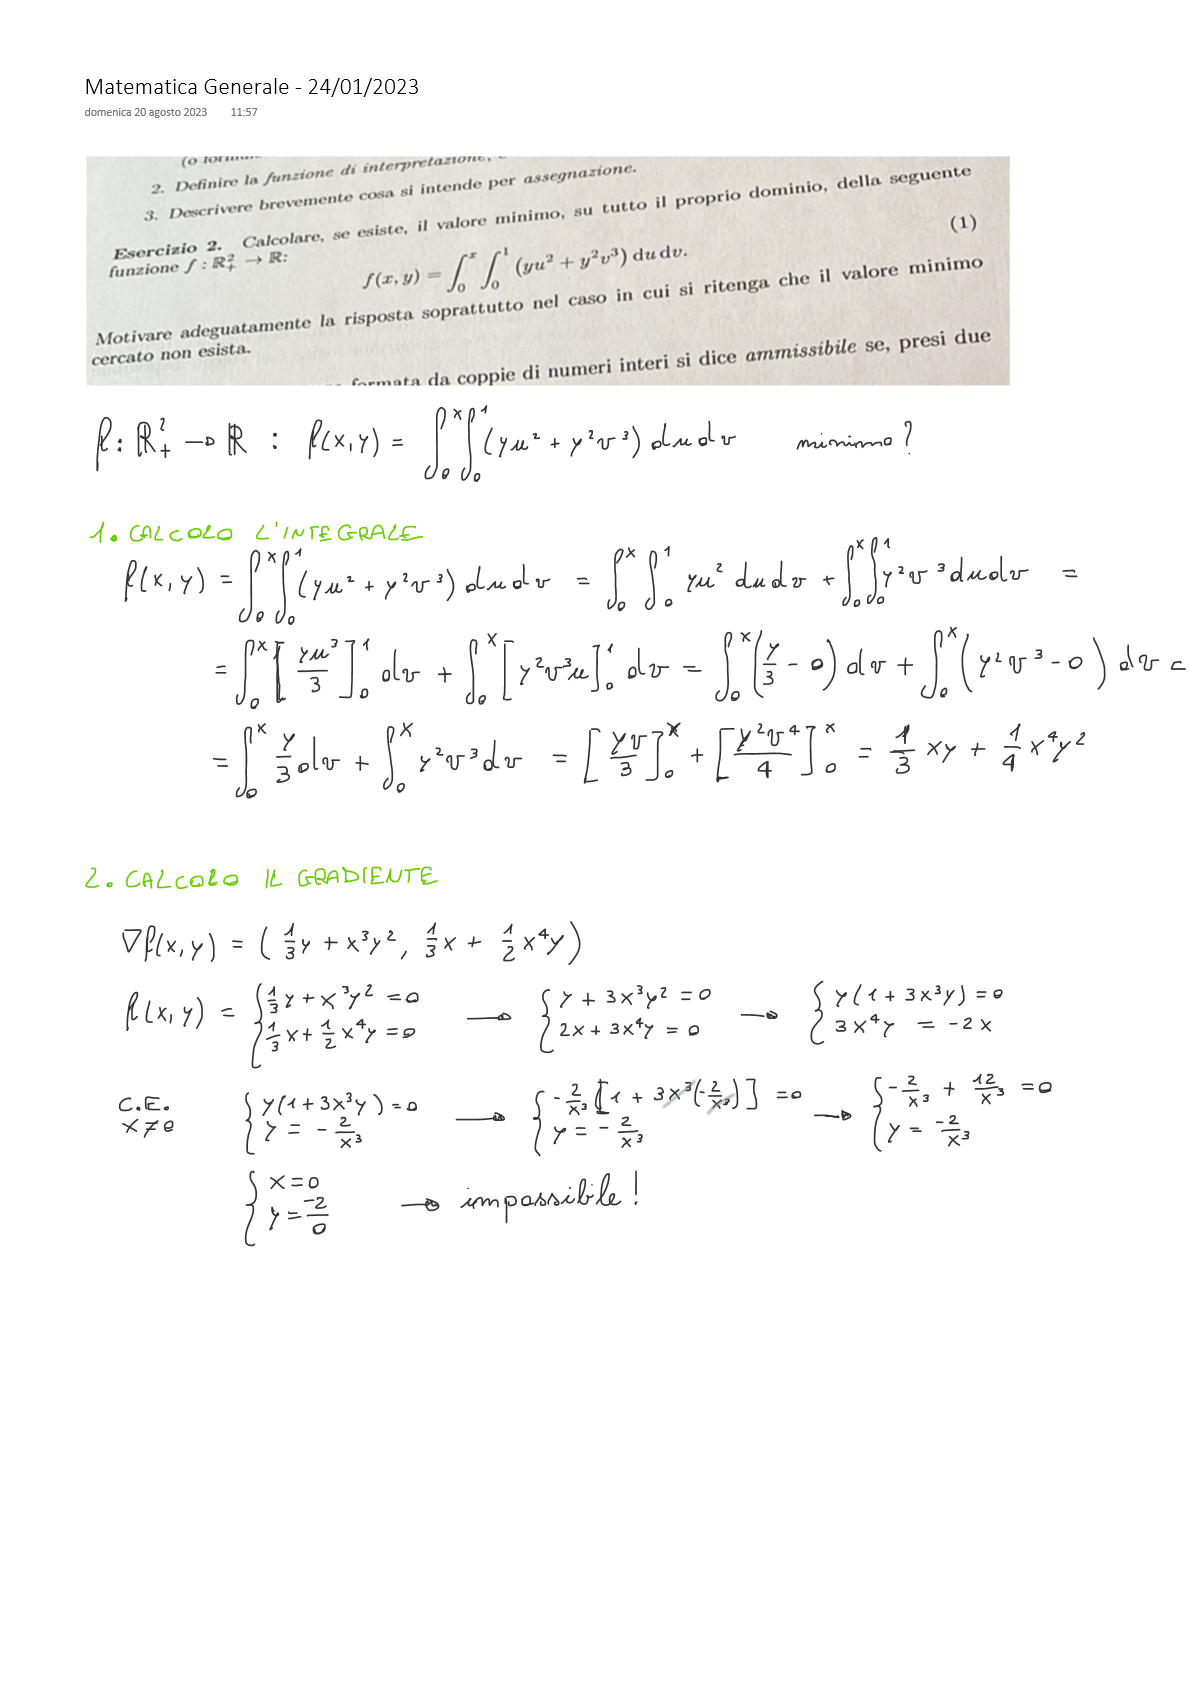 Matematica Generale - 24/01/2023
domenica 20 agosto 2023 11:57
2. Definire la funzione di interpretazione,
3. Descrivere brevemente cosa si intende per assegnazione.
Esercizio 2. Calcolare, se esiste, il valore minimo, su tutto il proprio dominio, della seguente
funzione f : ℝ²₊ → ℝ:
f(x, y) = ∫₀ˣ ∫₀¹ (yu² + y²v³) du dv. (1)
Motivare adeguatamente la risposta soprattutto nel caso in cui si ritenga che il valore minimo
cercato non esista.
formata da coppie di numeri interi si dice ammissibile se, presi due
f: ℝ²₊ → ℝ : f(x,y) = ∫₀ˣ ∫₀¹ (yu² + y²v³) du dv minimo?
1. CALCOLO L'INTEGRALE
f(x,y) = ∫₀ˣ ∫₀¹ (yu² + y²v³) du dv = ∫₀ˣ ∫₀¹ yu² du dv + ∫₀ˣ ∫₀¹ y²v³ du dv =
= ∫₀ˣ [yu³/3]₀¹ dv + ∫₀ˣ [y²v³u]₀¹ dv = ∫₀ˣ (y/3 - 0) dv + ∫₀ˣ (y²v³ - 0) dv =
= ∫₀ˣ y/3 dv + ∫₀ˣ y²v³ dv = [yv/3]₀ˣ + [y²v⁴/4]₀ˣ = 1/3 xy + 1/4 x⁴y²
2. CALCOLO IL GRADIENTE
∇f(x,y) = (1/3 y + x³y², 1/3 x + 1/2 x⁴y)
f(x,y) = { 1/3 y + x³y² = 0 → { y + 3x³y² = 0 → { y(1 + 3x³y) = 0
1/3 x + 1/2 x⁴y = 0 2x + 3x⁴y = 0 3x⁴y = -2x
C.E. { y(1 + 3x³y) = 0 → { -2/x³ [1 + 3x³(-2/x³)] = 0 → { -2/x³ + 12/x³ = 0
x≠0 y = -2/x³ y = -2/x³ y = -2/x³
{ x = 0
y = -2/0 → impossibile!